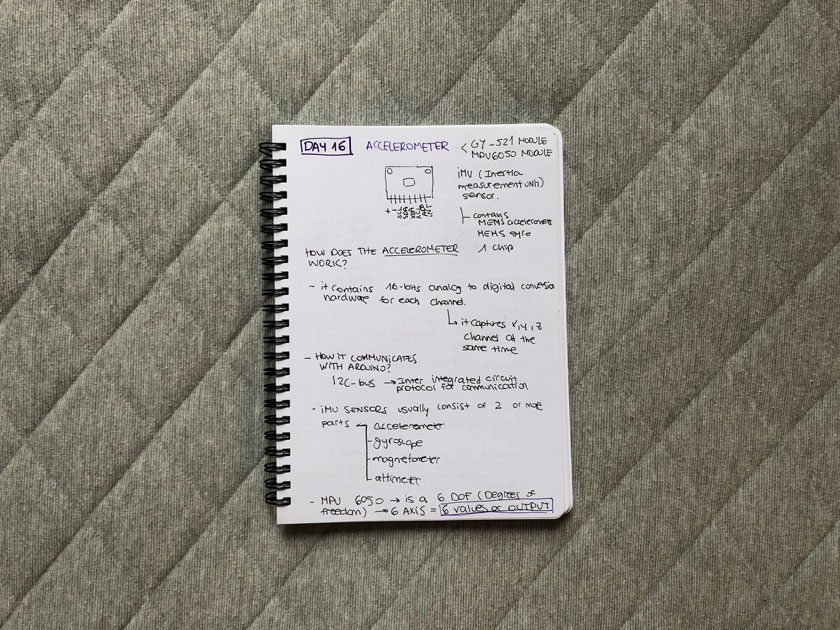 DAY 16 ACCELEROMETER < GY-521 MODULE
MPU6050 MODULE
iMU (Inertia
measurement unit)
sensor.
+ -
contains
MEMS accelerometer
MEMS gyro
1 chip
HOW DOES THE ACCELEROMETER
WORK?
- it contains 16-bits analog to digital conversion
hardware for each channel.
it captures x, y, z
channel at the
same time
- HOW IT COMMUNICATES
WITH ARDUINO?
I2C-bus → Inter integrated circuit
protocol for communication
- iMU SENSORS usually consist of 2 or more
parts
accelerometer
- gyroscope
- magnetometer
altimeter
- MPU 6050 → is a 6 DOF (Degrees of
freedom) → 6 AXIS = 6 values as OUTPUT